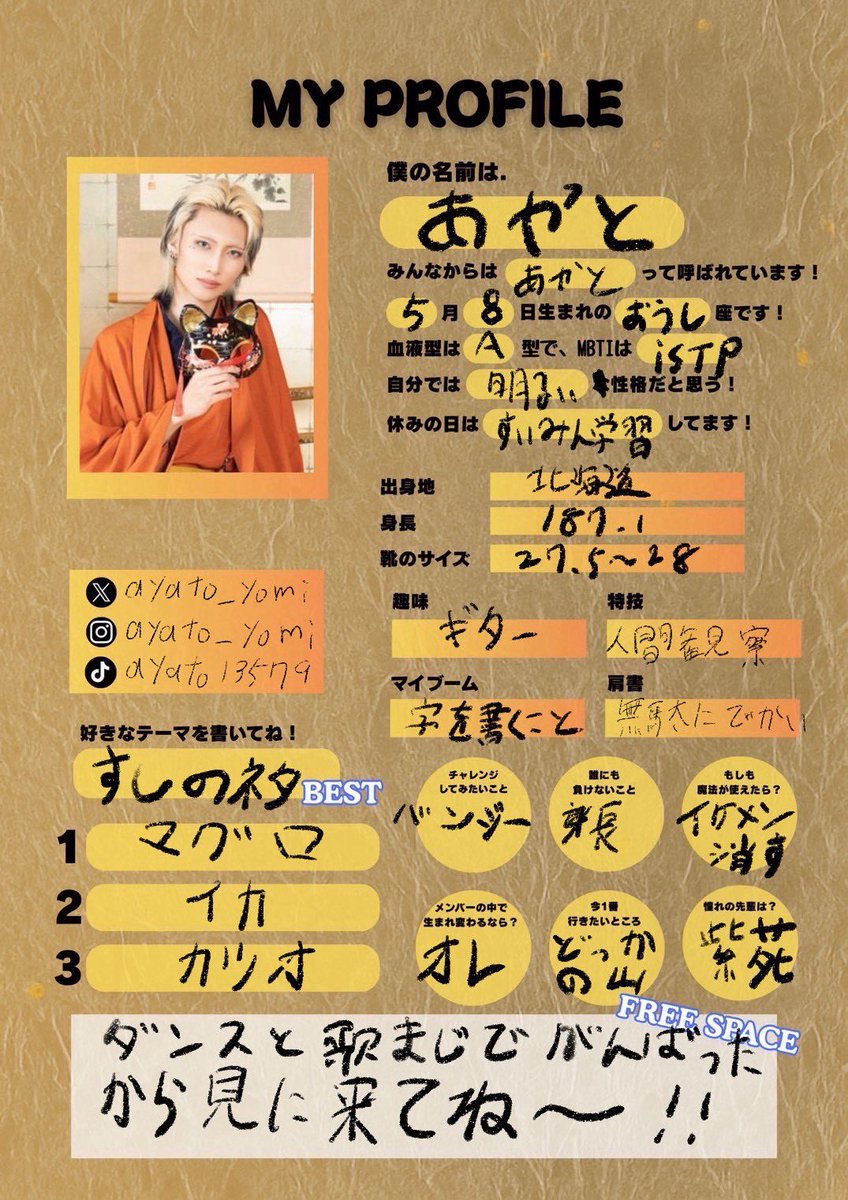 MY PROFILE
僕の名前は.
あやと
みんなからは あやと って呼ばれています！
5月8日生まれの おうし 座です！
血液型は A 型で、MBTIは isTP
自分では 明るい 性格だと思う！
休みの日は すいみん学習 してます！
出身地 北海道
身長 187.1
靴のサイズ 27.5〜28
ayato_yomi
ayato_yomi
ayato13579
趣味
ギター
特技
人間観察
マイブーム
字を書くこと
肩書
無駄にでかい
好きなテーマを書いてね！
すしのネタ BEST
1 マグロ
2 イカ
3 カツオ
チャレンジ
してみたいこと
バンジー
誰にも
負けないこと
身長
もしも
魔法が使えたら？
イケメン
消す
メンバーの中で
生まれ変わるなら？
オレ
今1番
行きたいところ
どっか
の山
憧れの先輩は？
紫苑
FREE SPACE
ダンスと歌まじでがんばった
から見に来てね〜!!